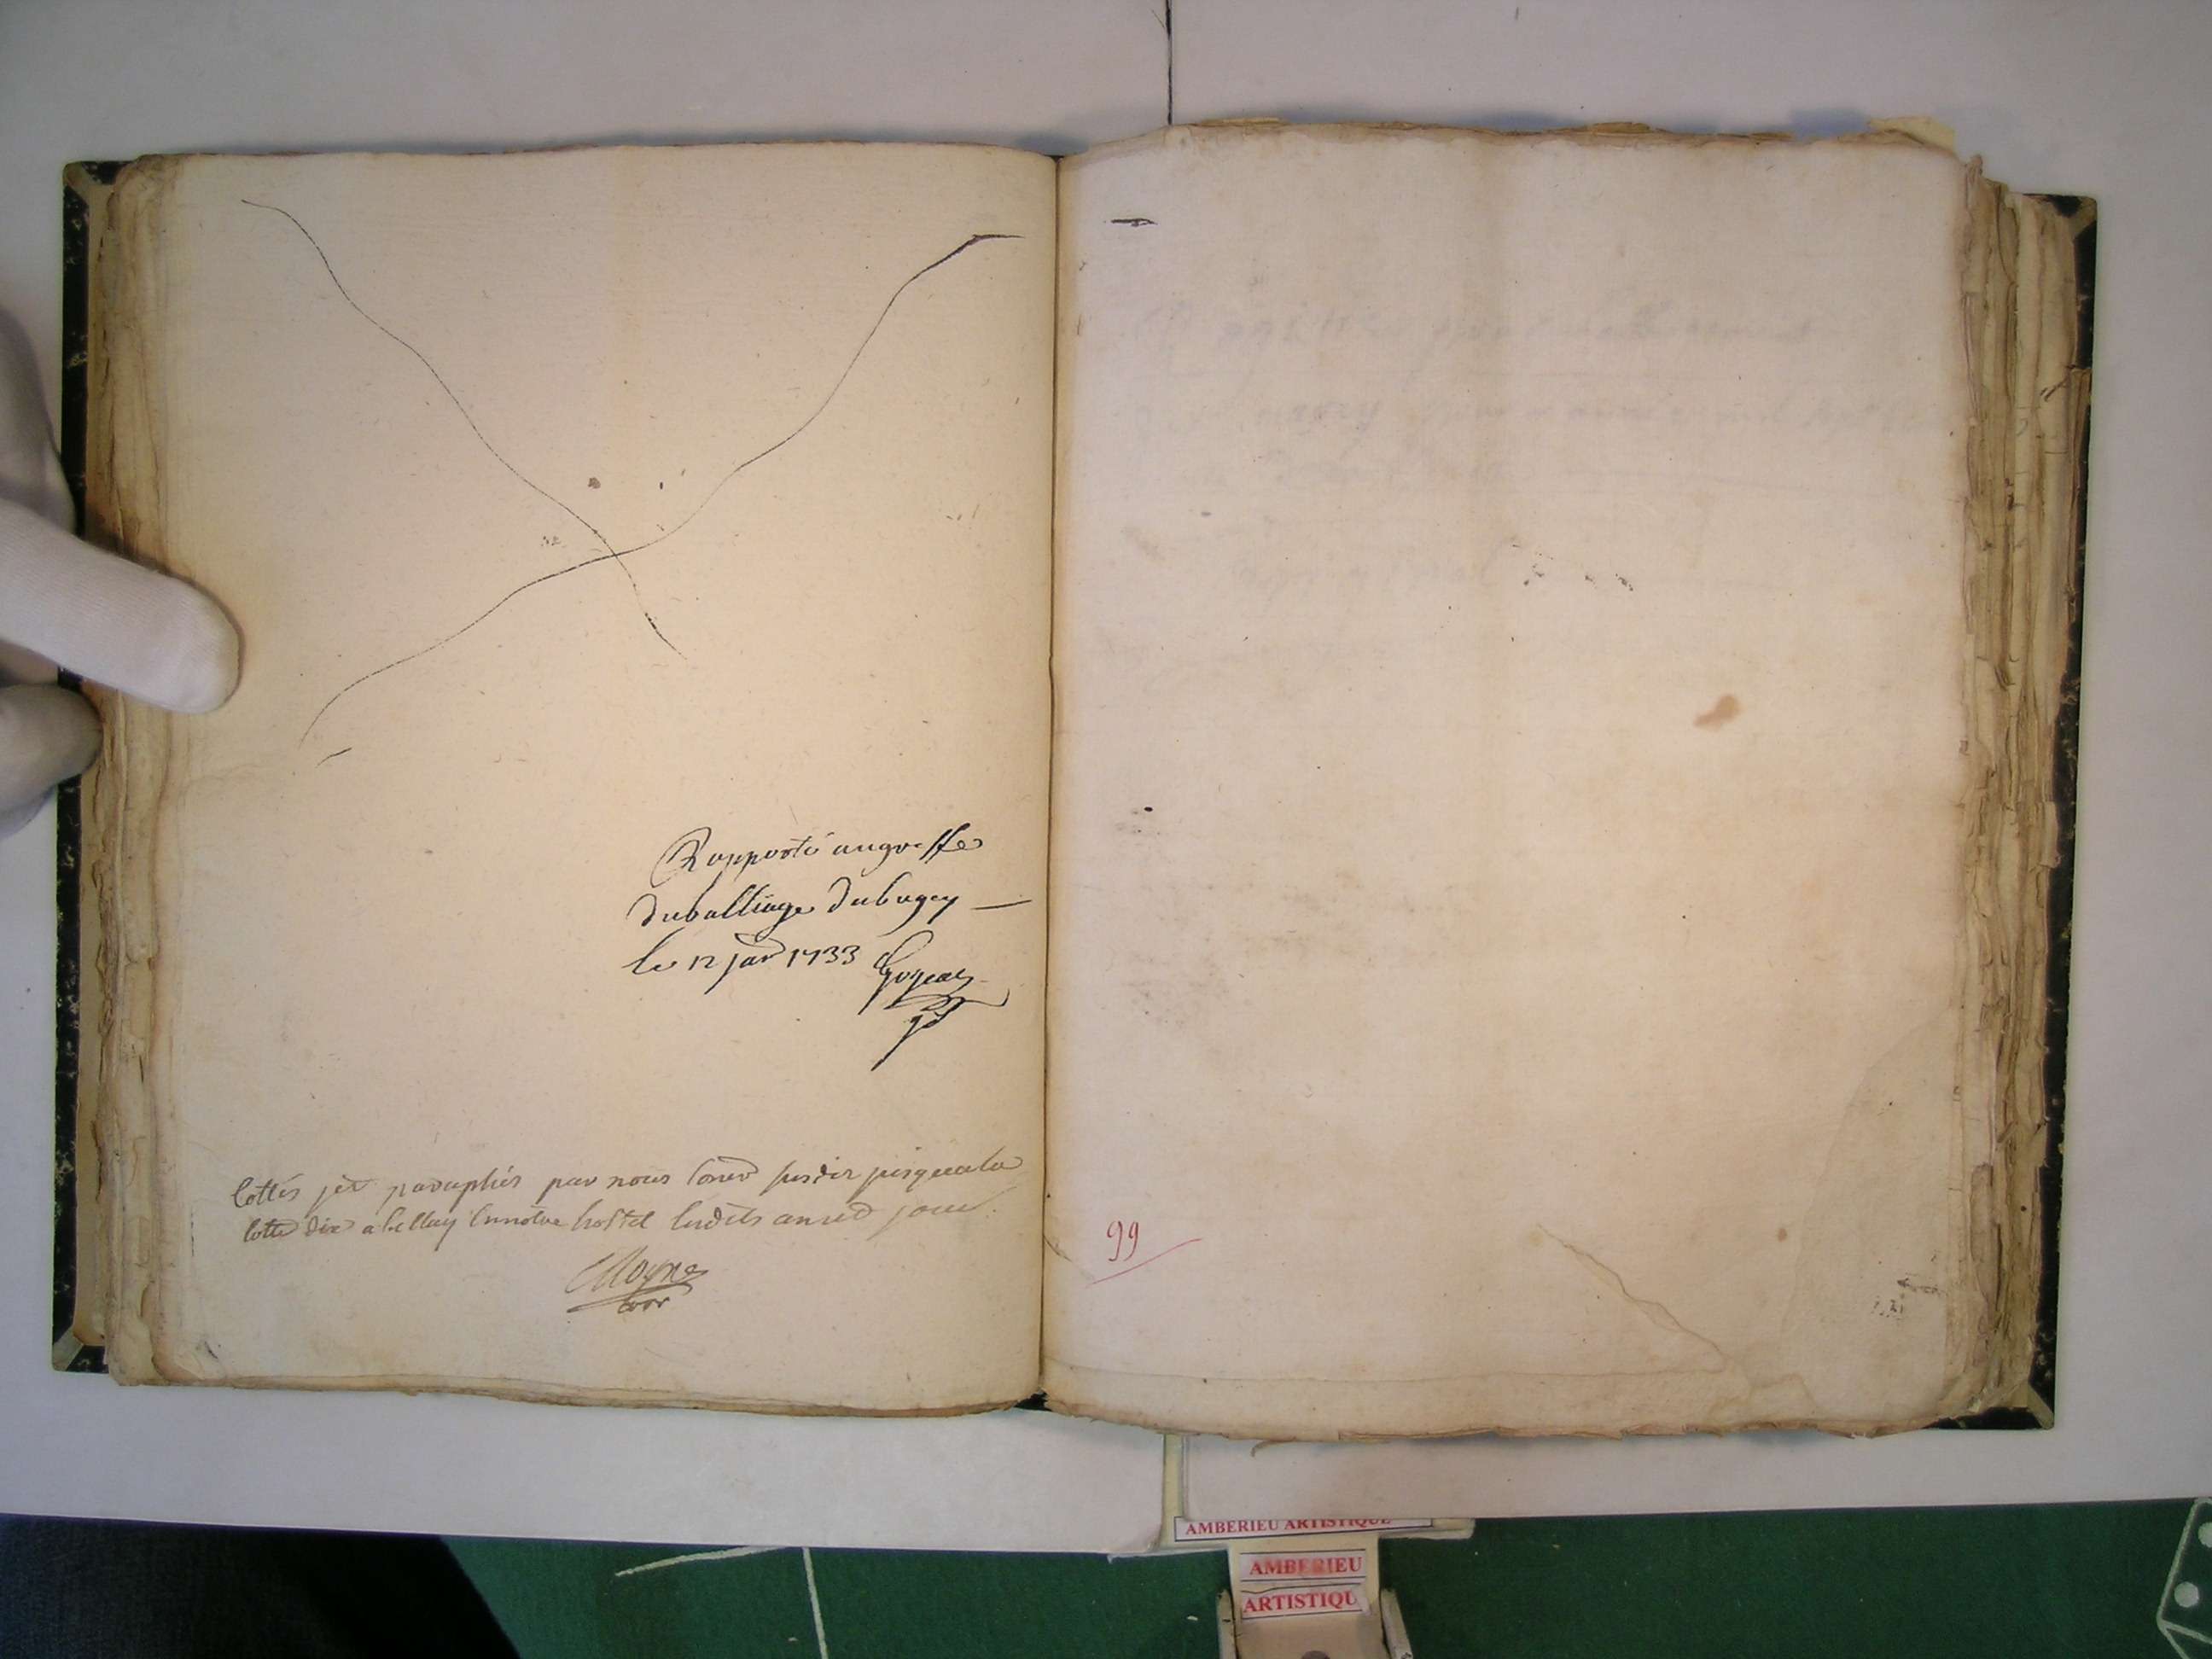 Rapporté augreffe
duballiage dubugey —
le 12 janr 1733
Cottés et paraphés par nous Consr susdit jusquala
Cotte dix a bellay en notre hostel lesdits an et jour.
Moyne
99
AMBERIEU ARTISTIQUE
AMBERIEU
ARTISTIQU